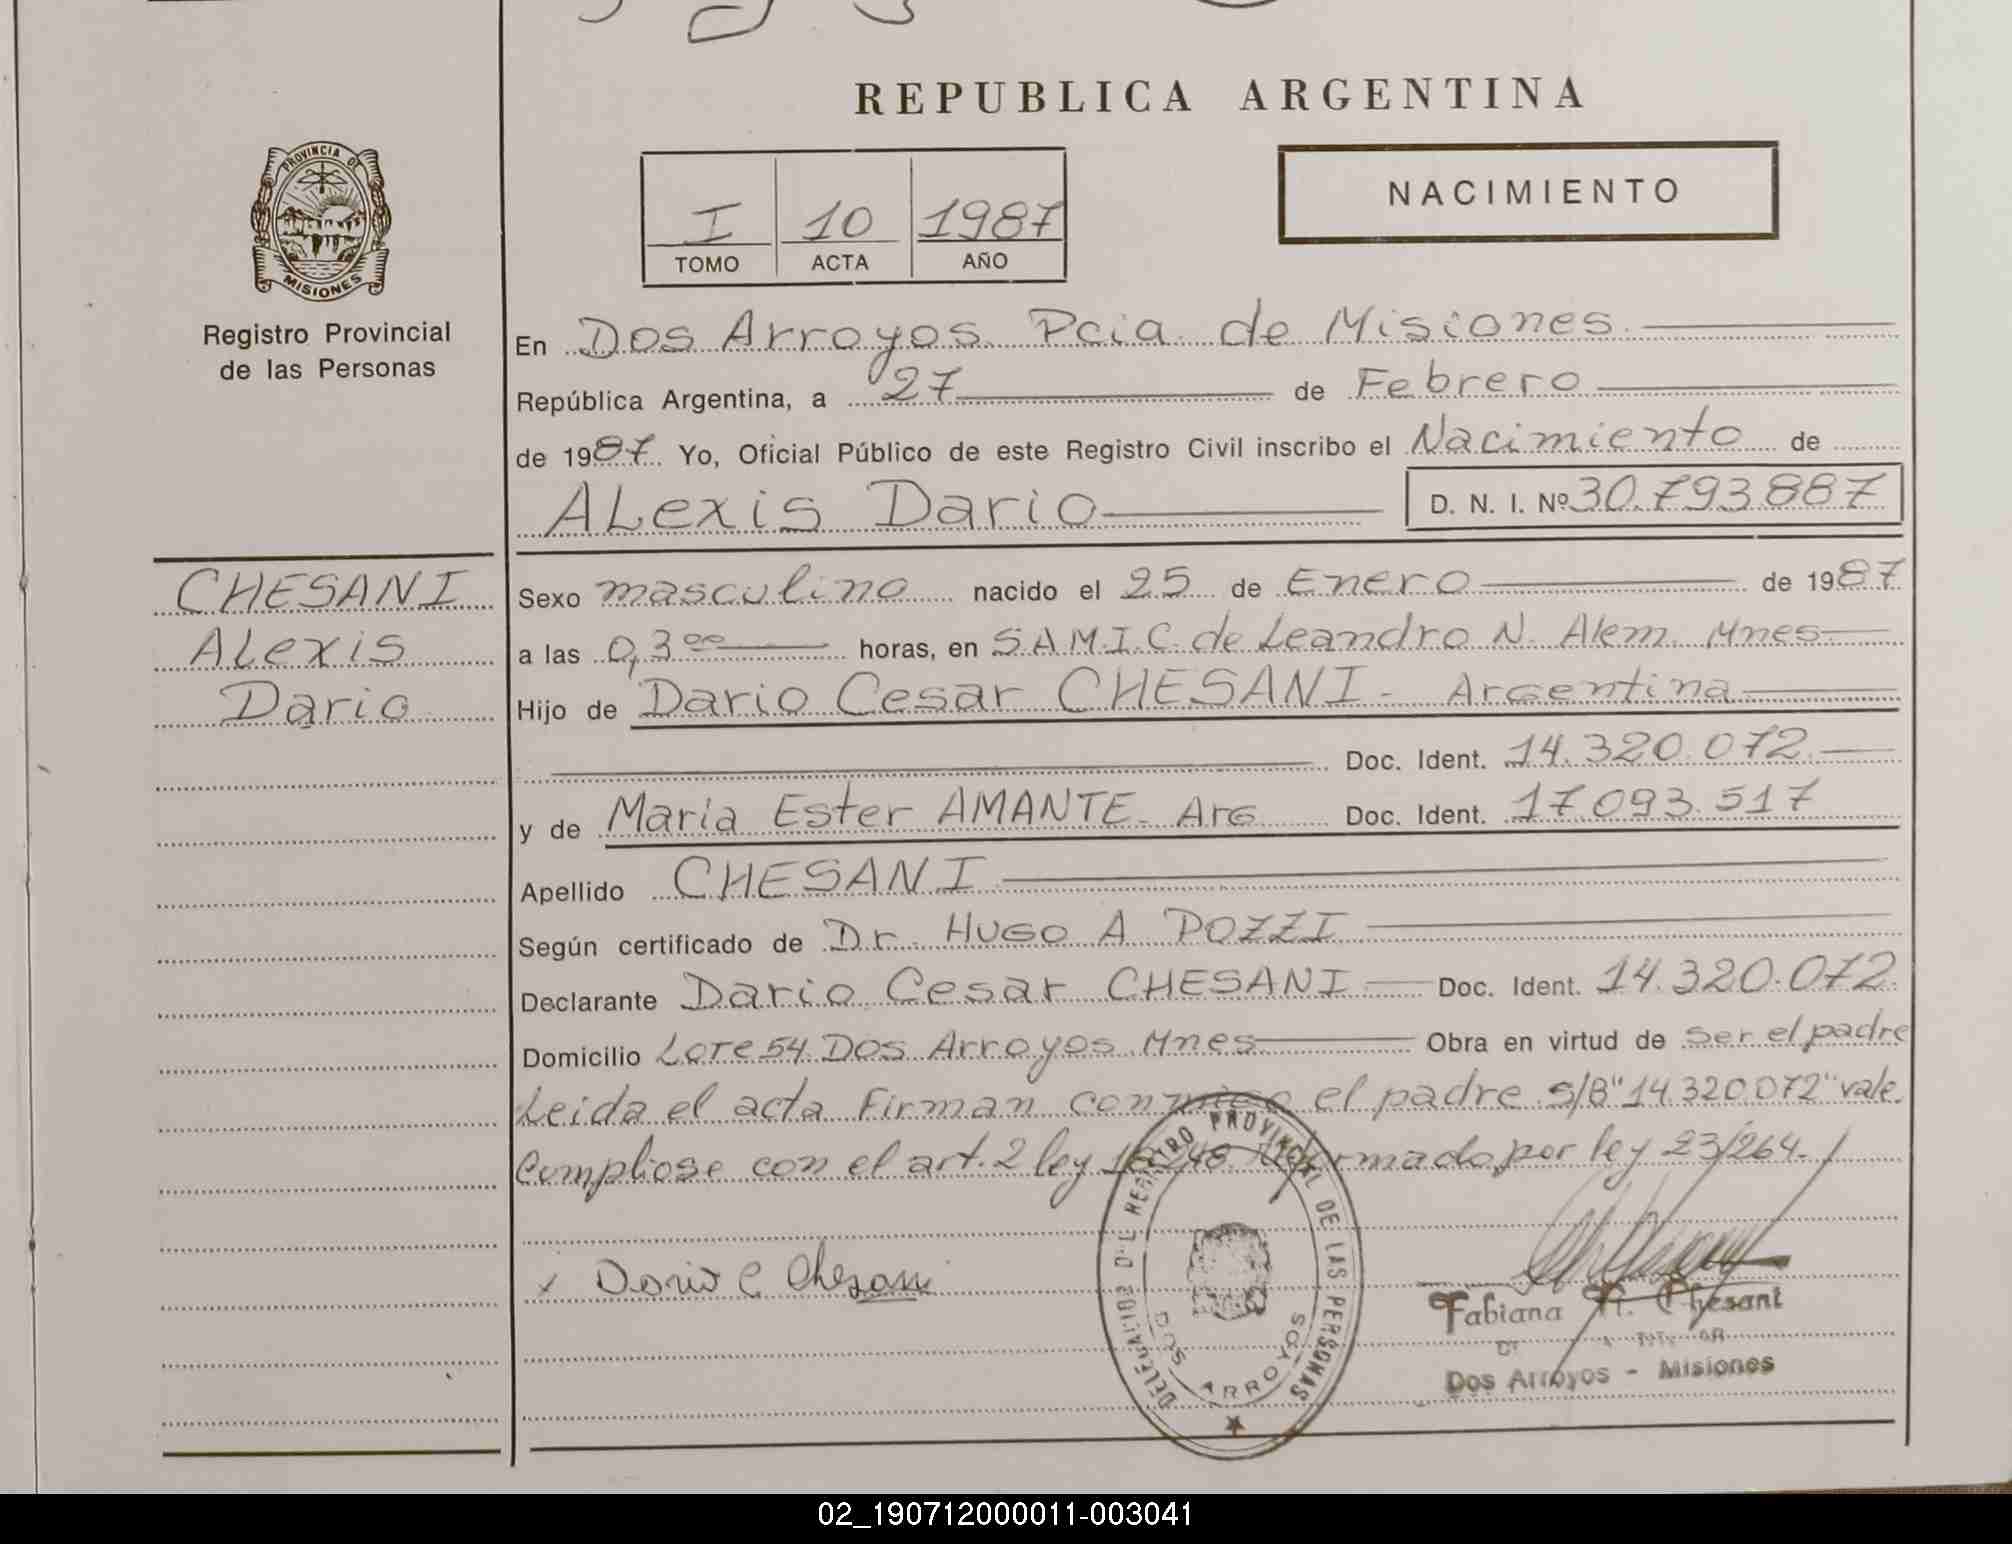 REPUBLICA ARGENTINA
PROVINCIA DE
MISIONES
Registro Provincial
de las Personas
I 10 1987
TOMO ACTA AÑO
NACIMIENTO
En Dos Arroyos Pcia. de Misiones
República Argentina, a 27 de Febrero
de 1987 Yo, Oficial Público de este Registro Civil inscribo el Nacimiento de
ALexis Dario D. N. I. Nº 30.793.887
CHESANI
ALexis
Dario
Sexo masculino nacido el 25 de Enero de 1987
a las 0,3 00 horas, en S.A.M.I.C. de Leandro N. Alem. Mnes
Hijo de Dario Cesar CHESANI - Argentina
Doc. Ident. 14.320.072
y de Maria Ester AMANTE - Arg Doc. Ident. 17.093.517
Apellido CHESANI
Según certificado de Dr. HUGO A POZZI
Declarante Dario Cesar CHESANI Doc. Ident. 14.320.072
Domicilio Lote 54 Dos Arroyos Mnes Obra en virtud de ser el padre
Leida el acta Firman conmigo el padre s/B "14.320.072" vale.
Cumpliose con el art. 2 ley 18.248 Reformado por ley 23/264.
x Dario C Chesani
DELEGACION DEL REGISTRO PROVINCIAL DE LAS PERSONAS
DOS ARROYOS
Fabiana Chesani
Dos Arroyos - Misiones
02_190712000011-003041